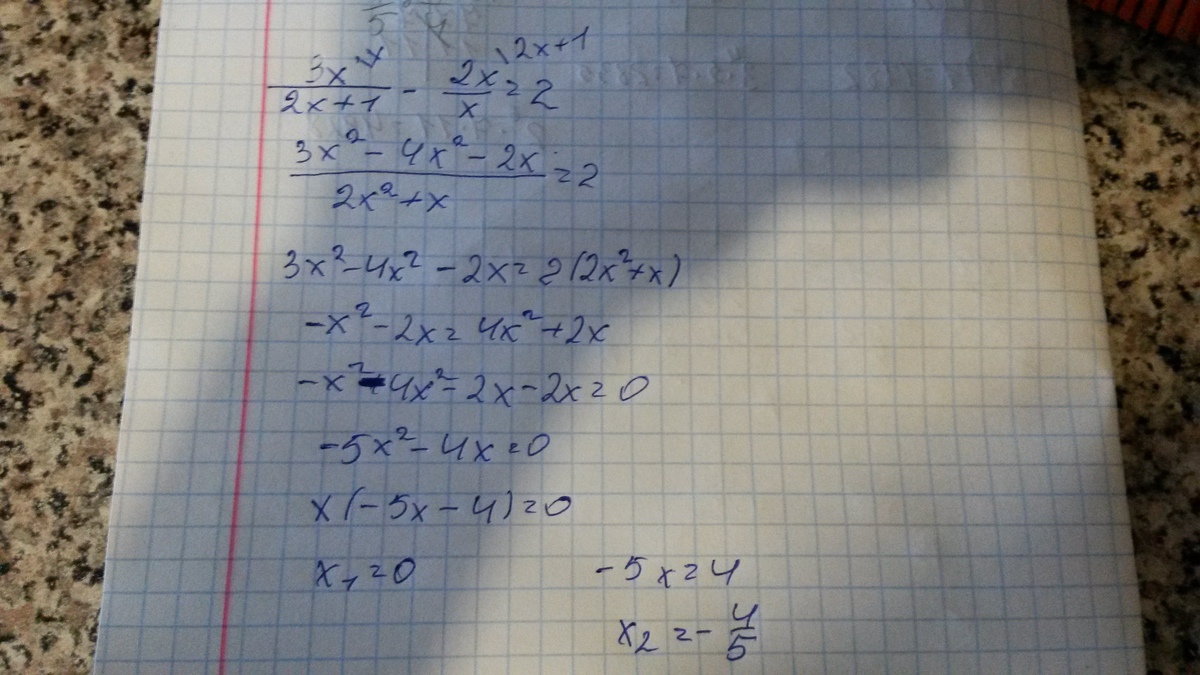 3x\x / 2x+1 - 2x\2x+1 / x = 2
3x² - 4x² - 2x / 2x² + x = 2
3x² - 4x² - 2x = 2(2x² + x)
-x² - 2x = 4x² + 2x
-x² - 4x² - 2x - 2x = 0
-5x² - 4x = 0
x(-5x - 4) = 0
x₁ = 0 -5x = 4
x₂ = - 4/5